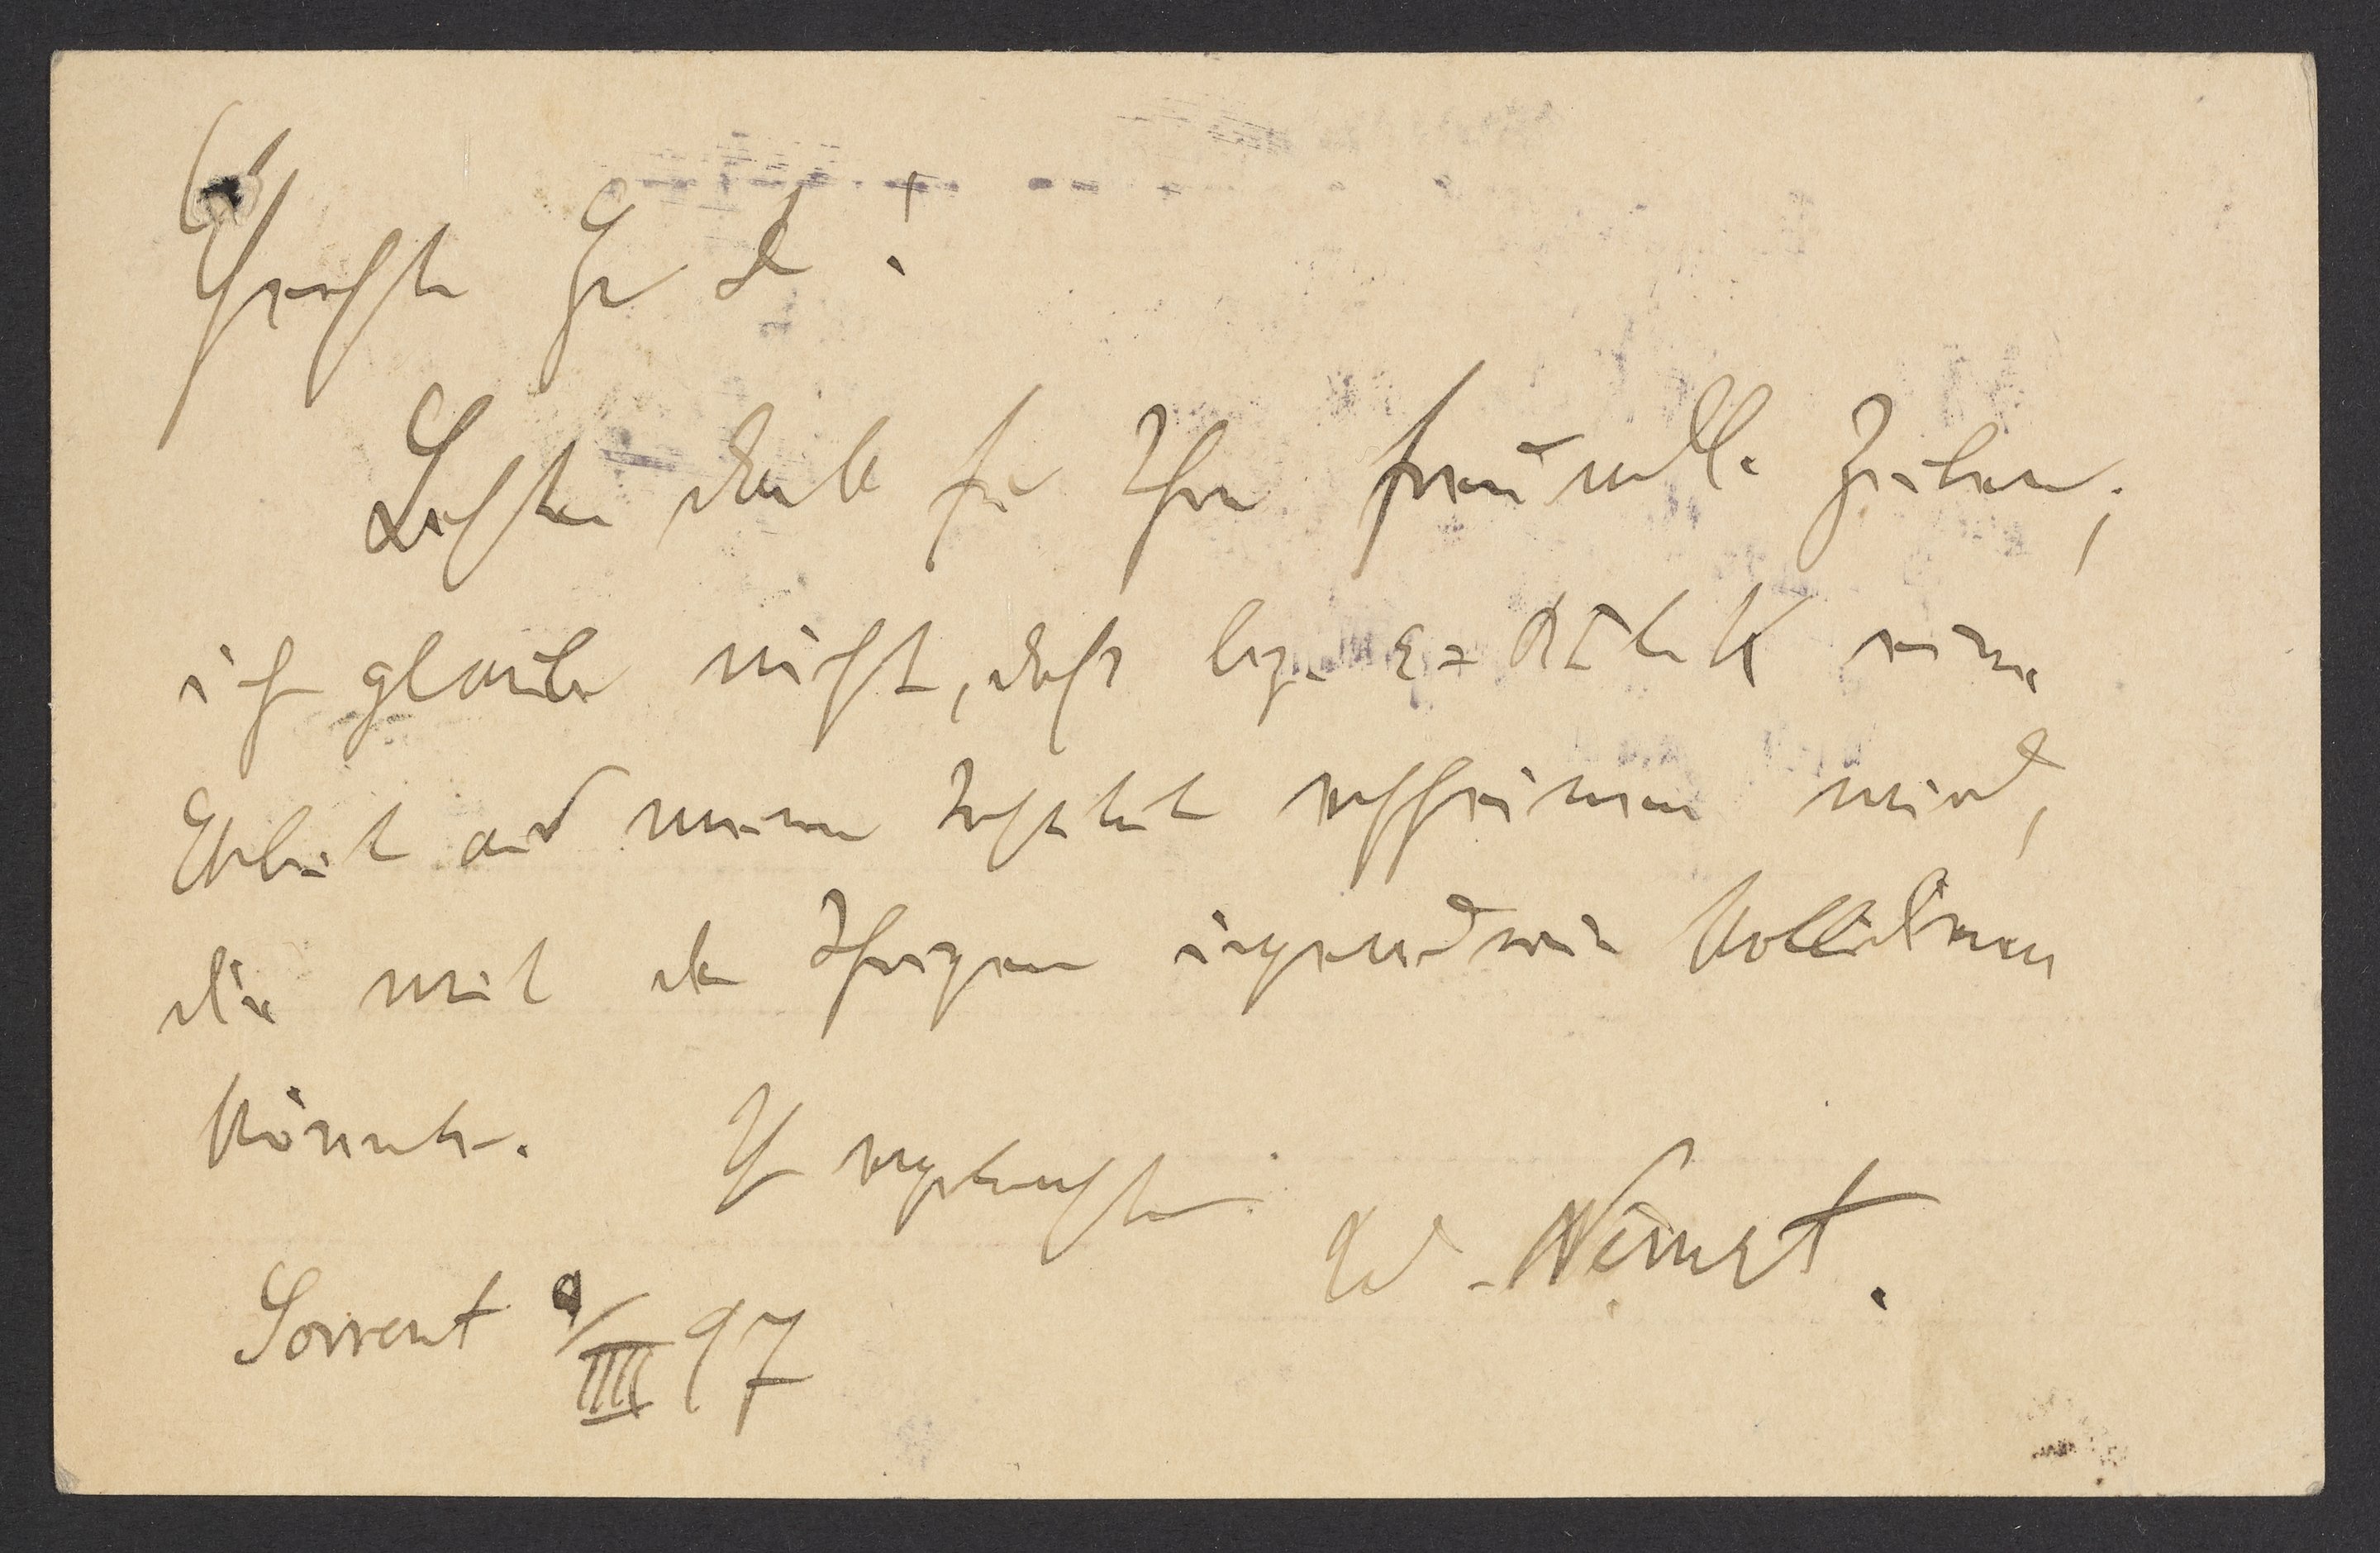 Geehrter Hr D !
Besten Dank für Ihre freundlichen Zeilen;
ich glaube nicht, dass bez. ε = RT ln K eine
Arbeit aus meinem Institut erscheinen wird,
die mit der Ihrigen irgendwie kollidieren
könnte. Ihr ergebenster
W. Nernst.
Sorrent 9/III 97